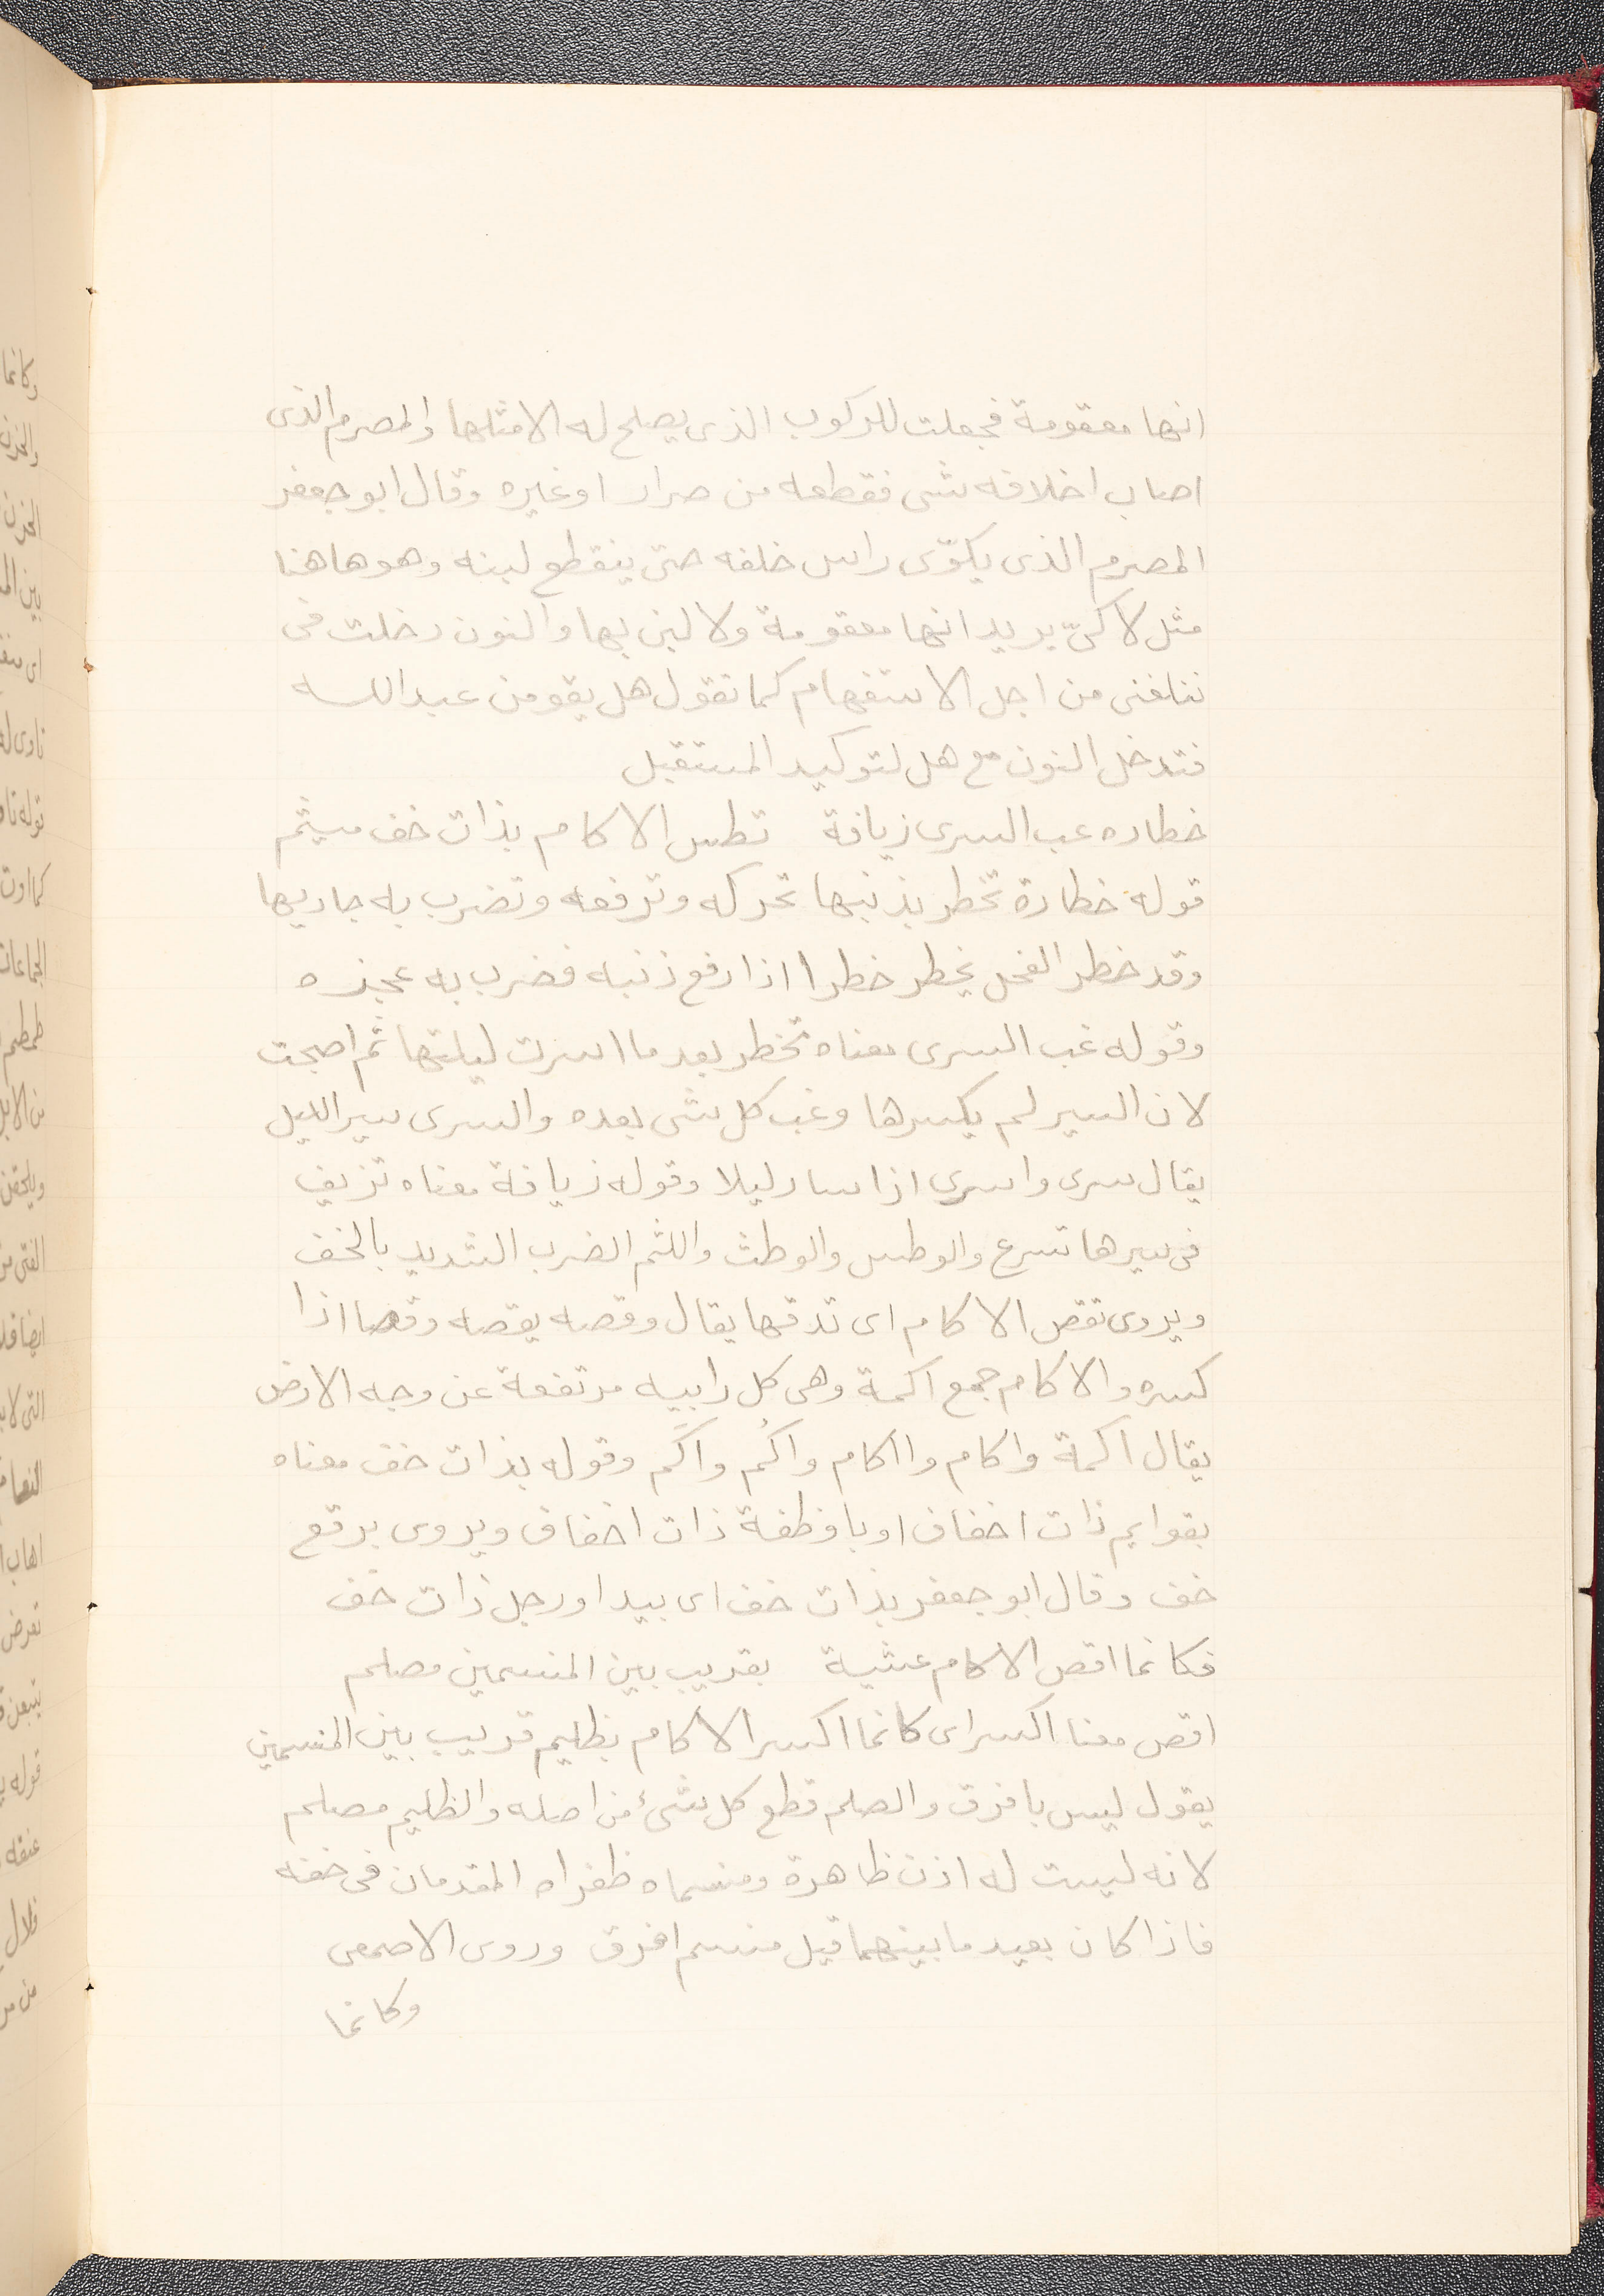 انها معقومة فجعلت للركوب الذى يصلح له الا مثلها والمصرم الذى
اصاب اخلافه شى فقطعه من صرار او غيره وقال ابو جعفر
المصرم الذى يكوّى راس خلفه حتى ينقطع لبنه وهو هاهنا
مثل لا كىّ يريد انها معقومة ولا لبن بها والنون دخلت فى
تبلغنى من اجل الاستفهام كما تقول هل يقومن عبدالله
فتدخل النون مع هل لتوكيد المستقبل
خطاره غب السرى زيافة تطس الاكام بذات خف ميثم
قوله خطارة تخطر بذنبها تحركه وترفعه وتضرب به حاذيها
وقد خطر الفحل يخطر خطرا اذا رفع ذنبه فضرب به عجزه
وقوله غب السرى معناه تخطر بعد ما اسرت ليلتها ثم اصبحت
لان السير لم يكسرها وغب كل شى بعده والسرى سير الليل
يقال سرى واسرى اذا سار ليلا وقوله زيافة معناه تزيف
فى سيرها تسرع والوطس والوطث واللثم الضرب الشديد بالخف
ويروى تقص الاكام اى تدقها يقال وقصه يقصه وقصا اذا
كسره والاكام جمع اكمة وهى كل رابيه مرتفعة عن وجه الارض
يقال اكمة واكام وااكام واكُم واكَم وقوله بذات خف معناه
بقوايم ذات اخفاف او باوظفة ذات اخفاف ويروى برقع
خف وقال ابو جعفر بذات خف اى بيد او رجل ذات خف
فكانما اقص الاكام عشية بقريب بين المنسمين مصلم
اقص معنا اكسر اى كانما اكسر الاكام بظليم قريب بين المنسمين
يقول ليس بافرق والصلم قطع كل شئ من اصله والظليم مصلم
لانه ليست له اذن ظاهرة ومنسماه ظفراه المقدمان فى خفه
فاذا كان بعيد ما بينهما قيل منسم افرق وروى الاصمعى
وكانما